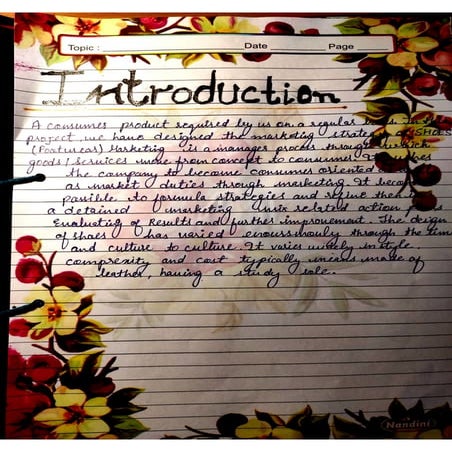 Topic : Date Page
Introduction
A consumer product required by us on a regular in
project, we have designed the marketing strategy of SHOES
(Footwear) Marketing is a manager process through which
goods / services move from concept to consumer It
the company to become consumer oriented
as market duties through marketing. It
possible to formula strategies and refine then
a detained marketing mix related action
Evaluating of Results and further improvement. The design
of shoes has varied enoussmously through the time
and culture to culture. It varies in style,
comprexity and cost typically made of
leather, having a study sole.
Nandini